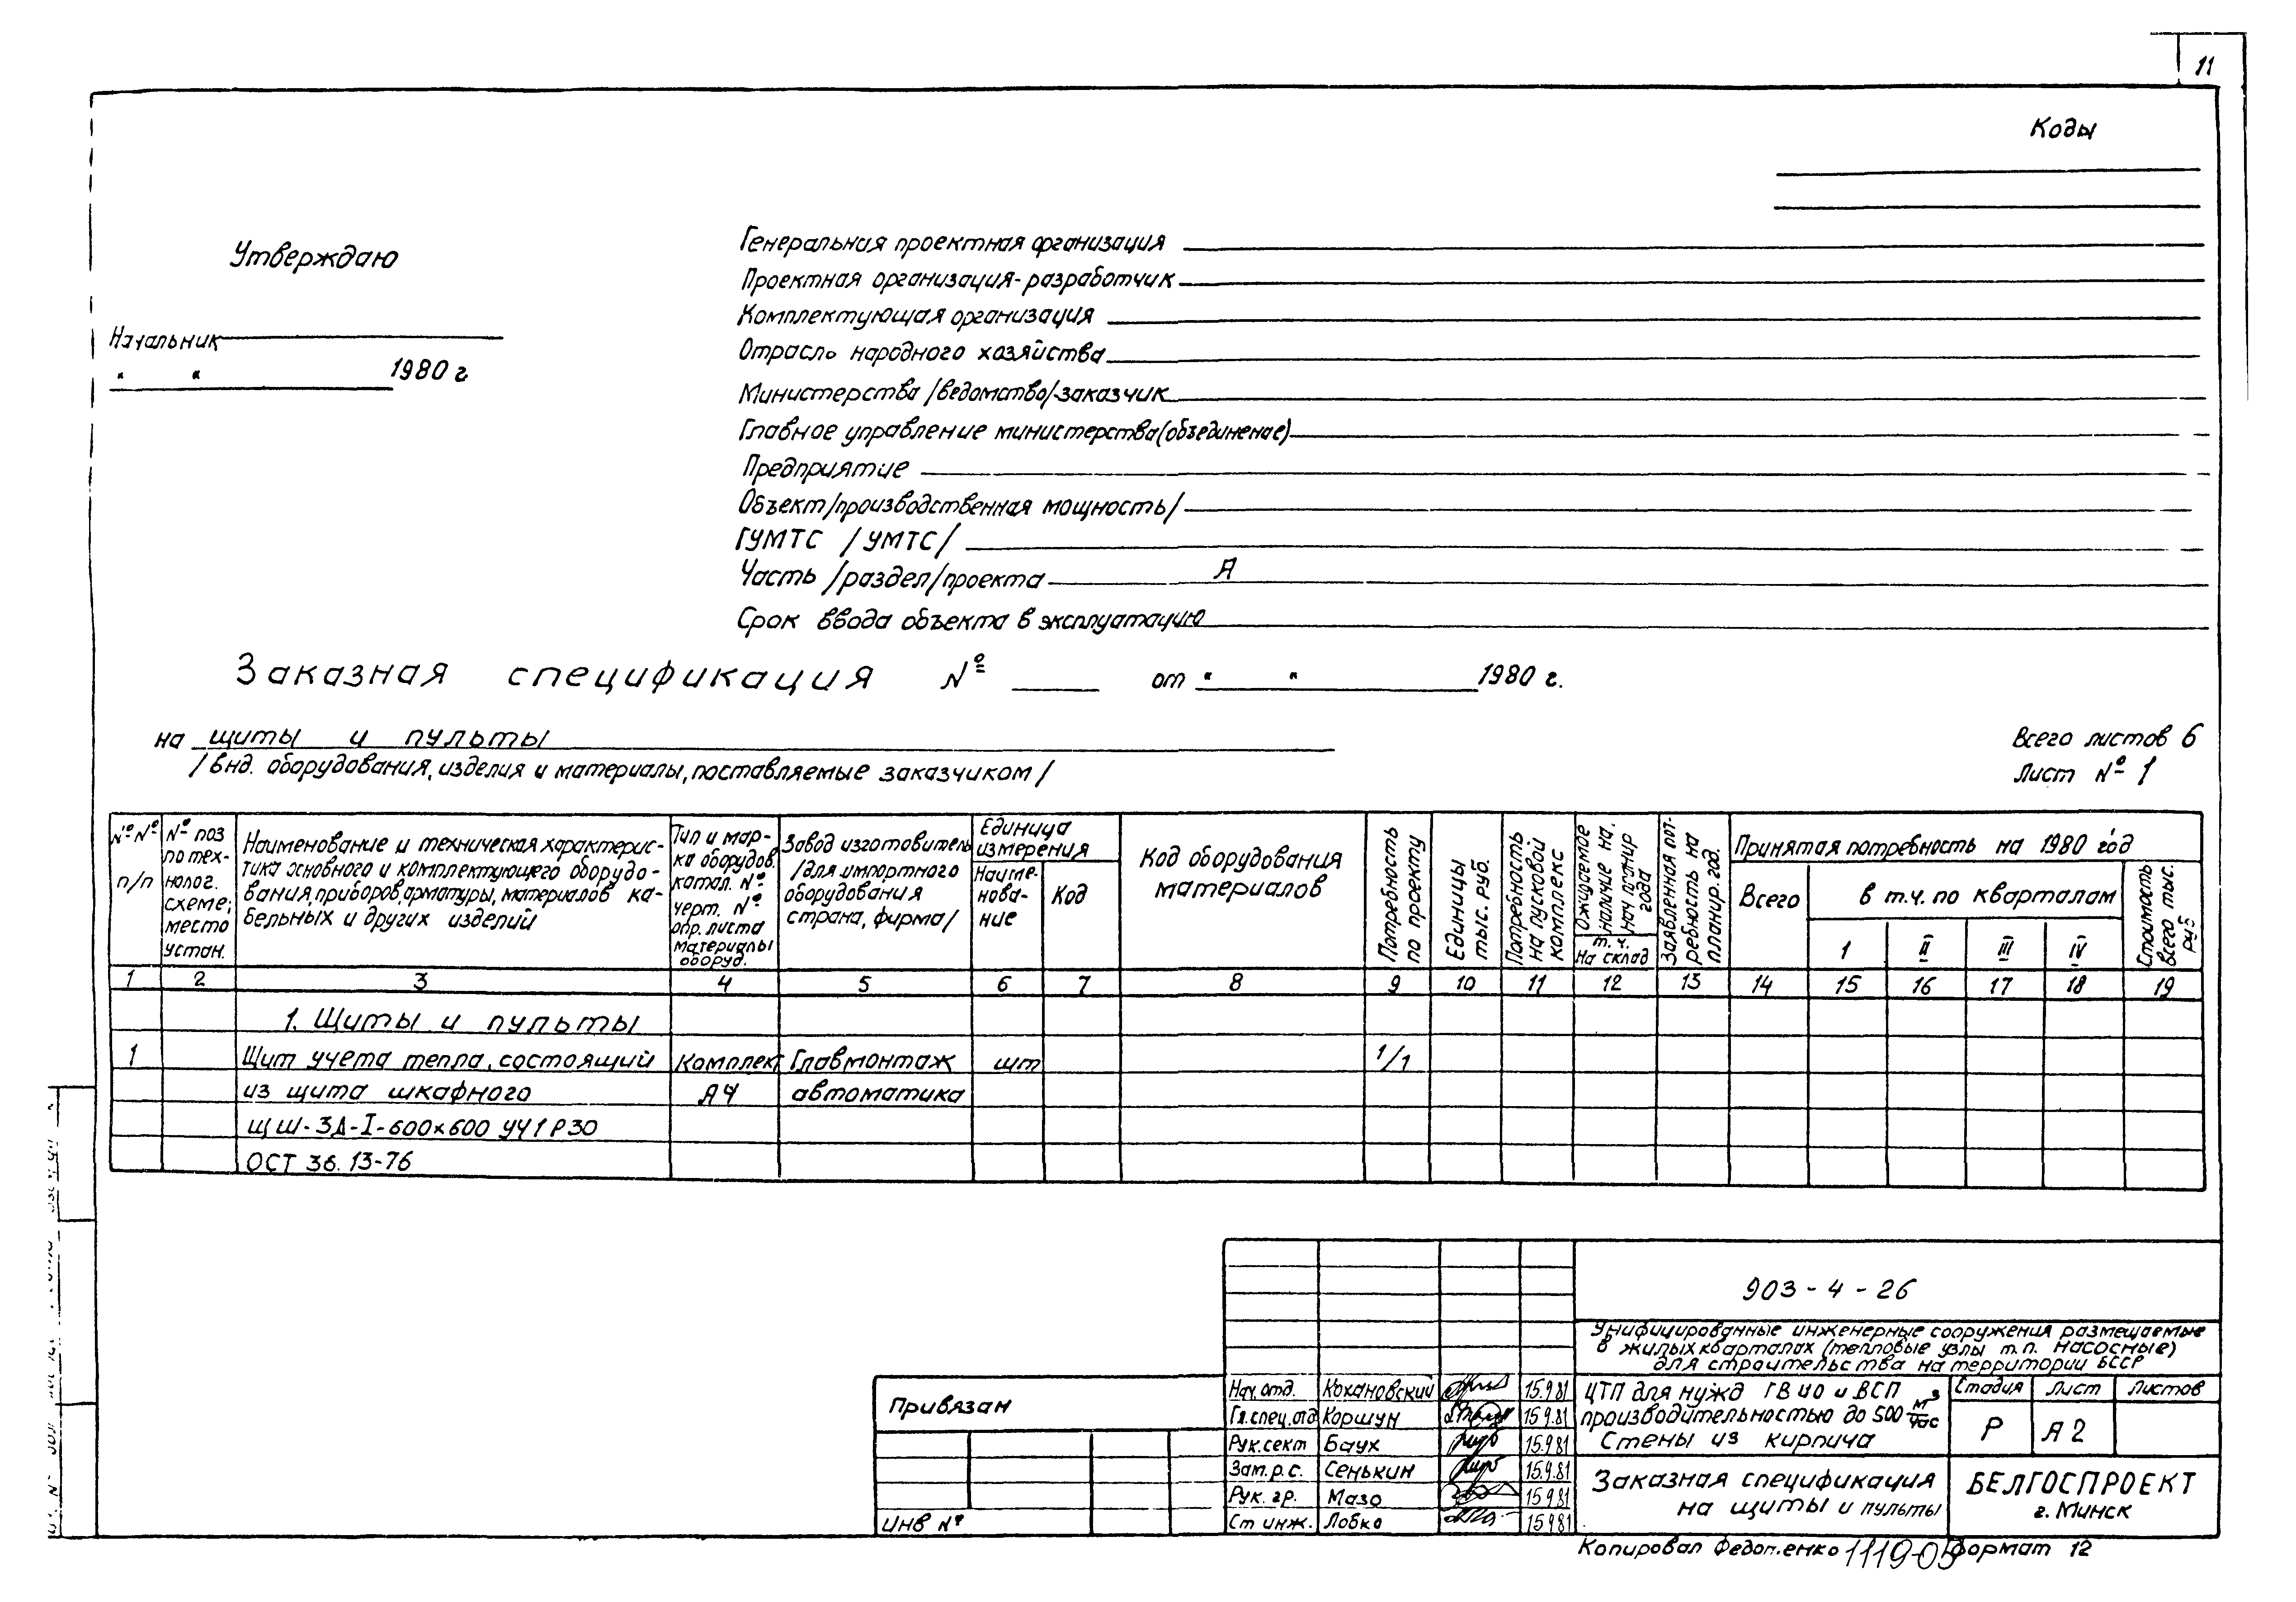 11
Коды
Утверждаю
Начальник
" " 1980 г
Генеральная проектная организация
Проектная организация-разработчик
Комплектующая организация
Отрасль народного хозяйства
Министерства /ведомство/-заказчик
Главное управление министерства (объединенае)
Предприятие
Объект/производственная мощность/
ГУМТС /УМТС/
Часть /раздел/проекта А
Срок ввода объекта в эксплуатацию
Заказная спецификация № от " " 1980 г.
на щиты и пульты
/внд. оборудования, изделия и материалы, поставляемые заказчиком/
Всего листов 6
Лист № 1
№ №
п/п
№ поз
по тех-
нолог.
схеме;
место
устан.
Наименование и техническая характерис-
тика основного и комплектующего оборудо-
вания, приборов, арматуры, материалов ка-
бельных и других изделий
Тип и мар-
ка оборудов.
катал. №
черт. №
опр. листа
материалы
оборуд.
Завод изготовитель
/для импортного
оборудования
страна, фирма/
Единица
измерения
Наиме-
нова-
ние
Код
Код оборудования
материалов
Потребность
по проекту
Единицы
тыс. руб.
Потребность
на пусковой
комплекс
Ожидаемое
наличие на.
нач. планир
года
т. ч.
На склад
Заявленная пот-
ребность на
планир. год.
Принятая потребность на 1980 год
Всего
в т.ч. по кварталам
1 II III IV
Стоимость
всего тыс.
руб
1 2 3 4 5 6 7 8 9 10 11 12 13 14 15 16 17 18 19
1. Щиты и пульты
1 Щит учета тепла, состоящий Комплект Главмонтаж шт 1/1
из щита шкафного А4 автоматика
ЩШ-ЗД-I-600×600 УЧ1Р30
ОСТ 36. 13-76
903-4-26
Унифицированные инженерные сооружения размещаемые
в жилых кварталах (тепловые узлы т.п. насосные)
для строительства на территории БССР
Привязан
Инв №
Нач. отд. Кохановский 15.9.81
Гл. спец. отд Коршун 15.9.81
Рук. сект Баух 15.9.81
Зам. р. с. Сенькин 15.9.81
Рук. гр. Мазо 15.9.81
Ст инж. Лобко 15 9 81
ЦТП для нужд ГВ ио и ВСП
производительностью до 500 м³/час
Стены из кирпича
Стадия Лист Листов
Р А2
Заказная спецификация
на щиты и пульты
БЕЛГОСПРОЕКТ
г. Минск
Копировал 1119-05 Формат 12